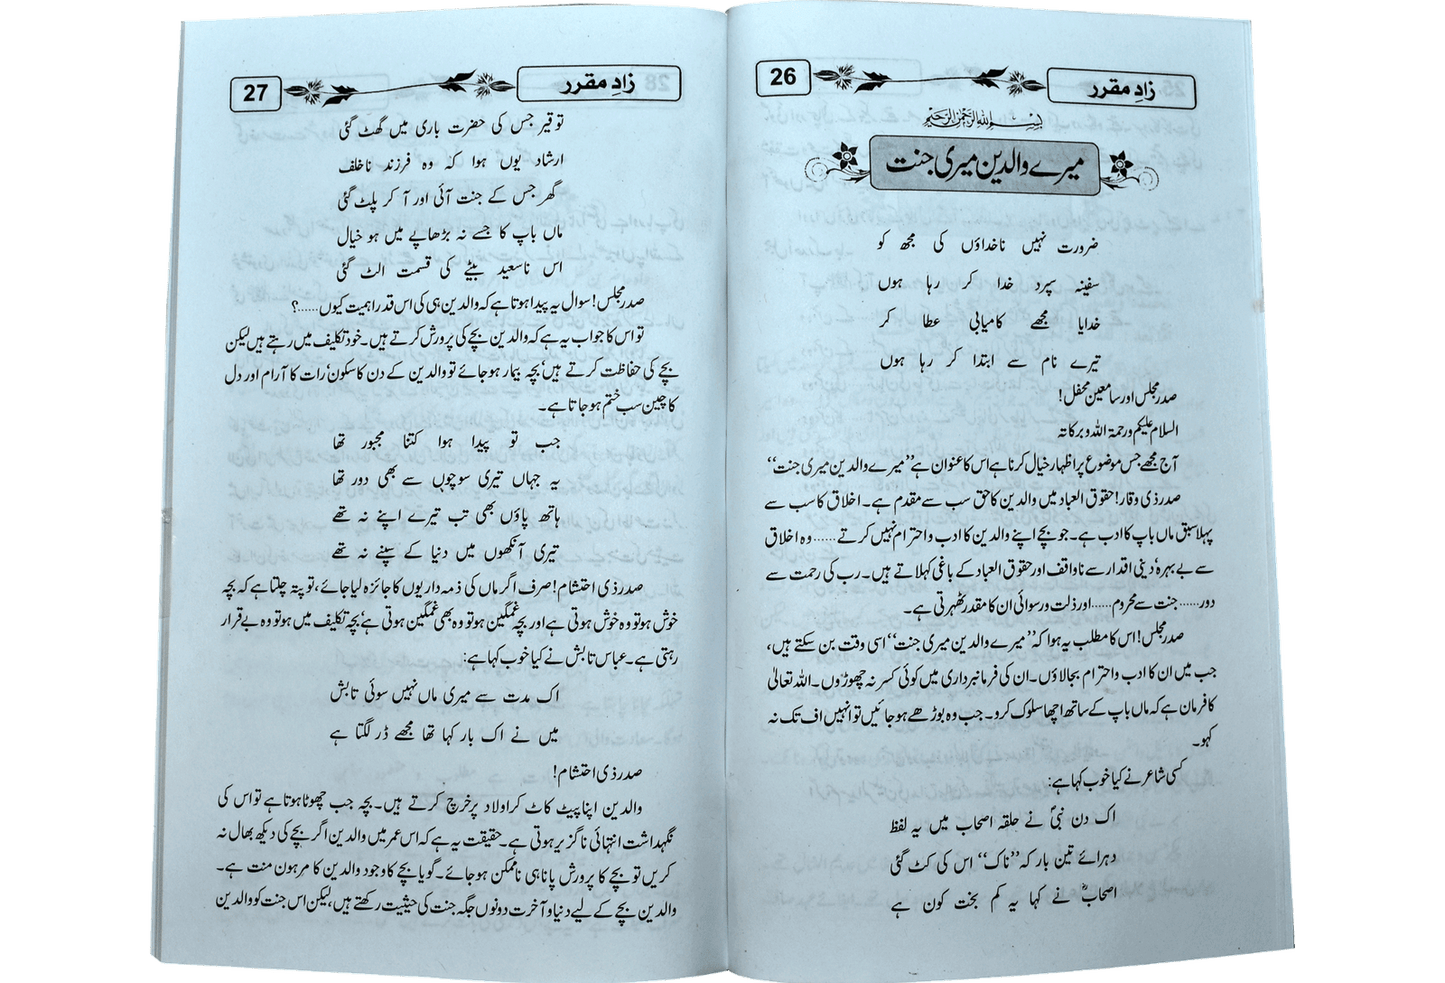 زادِ مقرر
26
بسم اللہ الرحمن الرحیم
میرے والدین میری جنت
ضرورت نہیں ناخداؤں کی مجھ کو
سفینہ سپرد خدا کر رہا ہوں
خدایا مجھے کامیابی عطا کر
تیرے نام سے ابتدا کر رہا ہوں
صدر مجلس اور سامعین محفل!
السلام علیکم ورحمۃ اللہ وبرکاتہ
آج مجھے جس موضوع پر اظہار خیال کرنا ہے اس کا عنوان ہے ’’میرے والدین میری جنت‘‘
صدر ذی وقار! حقوق العباد میں والدین کا حق سب سے مقدم ہے۔ اخلاق کا سب سے
پہلا سبق ماں باپ کا ادب ہے۔ جو بچے اپنے والدین کا ادب و احترام نہیں کرتے...... وہ اخلاق
سے بے بہرہ‘ دینی اقدار سے ناواقف اور حقوق العباد کے باغی کہلاتے ہیں۔ رب کی رحمت سے
دور...... جنت سے محروم...... اور ذلت و رسوائی ان کا مقدر ٹھہرتی ہے۔
صدر مجلس! اس کا مطلب یہ ہوا کہ ’’میرے والدین میری جنت‘‘ اسی وقت بن سکتے ہیں،
جب میں ان کا ادب و احترام بجا لاؤں۔ ان کی فرمانبرداری میں کوئی کسر نہ چھوڑوں۔ اللہ تعالیٰ
کا فرمان ہے کہ ماں باپ کے ساتھ اچھا سلوک کرو۔ جب وہ بوڑھے ہو جائیں تو انہیں اف تک نہ
کہو۔
کسی شاعر نے کیا خوب کہا ہے:
اک دن نبیؐ نے حلقہ اصحاب میں یہ لفظ
دہرائے تین بار کہ ’’ناک‘‘ اس کی کٹ گئی
اصحابؓ نے کہا یہ کم بخت کون ہے
زادِ مقرر
27
توقیر جس کی حضرت باری میں گھٹ گئی
ارشاد یوں ہوا کہ وہ فرزند ناخلف
گھر جس کے جنت آئی اور آ کر پلٹ گئی
ماں باپ کا جسے نہ بڑھاپے میں ہو خیال
اس ناسعید بیٹے کی قسمت الٹ گئی
صدر مجلس! سوال یہ پیدا ہوتا ہے کہ والدین ہی کی اس قدر اہمیت کیوں......؟
تو اس کا جواب یہ ہے کہ والدین بچے کی پرورش کرتے ہیں۔ خود تکلیف میں رہتے ہیں لیکن
بچے کی حفاظت کرتے ہیں‘ بچہ بیمار ہو جائے تو والدین کے دن کا سکون‘ رات کا آرام اور دل
کا چین سب ختم ہو جاتا ہے۔
جب تو پیدا ہوا کتنا مجبور تھا
یہ جہاں تیری سوچوں سے بھی دور تھا
ہاتھ پاؤں بھی تب تیرے اپنے نہ تھے
تیری آنکھوں میں دنیا کے سپنے نہ تھے
صدر ذی احتشام! صرف اگر ماں کی ذمہ داریوں کا جائزہ لیا جائے، تو پتہ چلتا ہے کہ بچہ
خوش ہو تو وہ خوش ہوتی ہے اور بچہ غمگین ہو تو وہ بھی غمگین ہوتی ہے‘ بچہ تکلیف میں ہو تو وہ بے قرار
رہتی ہے۔ عباس تابش نے کیا خوب کہا ہے:
اک مدت سے میری ماں نہیں سوئی تابش
میں نے اک بار کہا تھا مجھے ڈر لگتا ہے
صدر ذی احتشام!
والدین اپنا پیٹ کاٹ کر اولاد پر خرچ کرتے ہیں۔ بچہ جب چھوٹا ہوتا ہے تو اس کی
نگہداشت انتہائی ناگزیر ہوتی ہے۔ حقیقت یہ ہے کہ اس عمر میں والدین اگر بچے کی دیکھ بھال نہ
کریں تو بچے کا پرورش پانا ہی ناممکن ہو جائے۔ گویا بچے کا وجود والدین کا مرہون منت ہے۔
والدین بچے کے لیے دنیا و آخرت دونوں جگہ جنت کی حیثیت رکھتے ہیں، لیکن اس جنت کو والدین